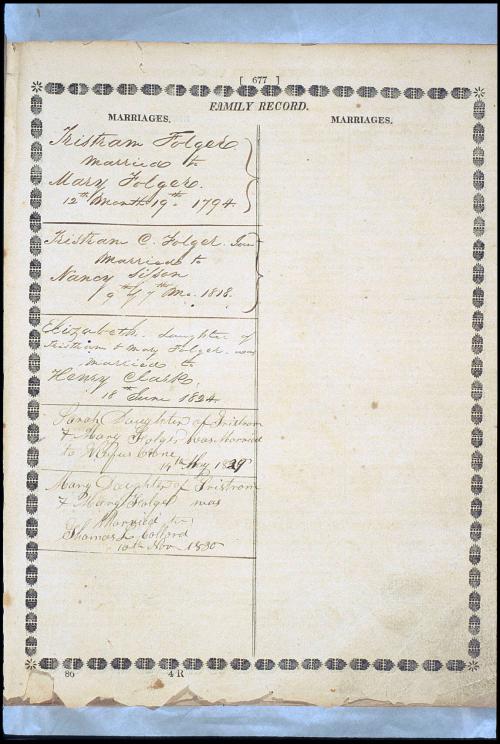 [ 677 ]
FAMILY RECORD.
MARRIAGES.
MARRIAGES.
Tristram Folger
married to
Mary Folger.
12th Month 19th. 1794
Tristram C. Folger. Jun
Married to
Nancy
9th 7th Mo. 1818.
Elizabeth daughter of
Tristram & Mary Folger. was
married to
Henry Clark,
18th June 1824
Sarah Daughter of Tristrom
& Mary Folger was Married
to Rufus
14th My 1829
Mary Daughter of Tristrom
& Mary Folger was
Married to
Thomas
10th Nov. 1830
86
4 R